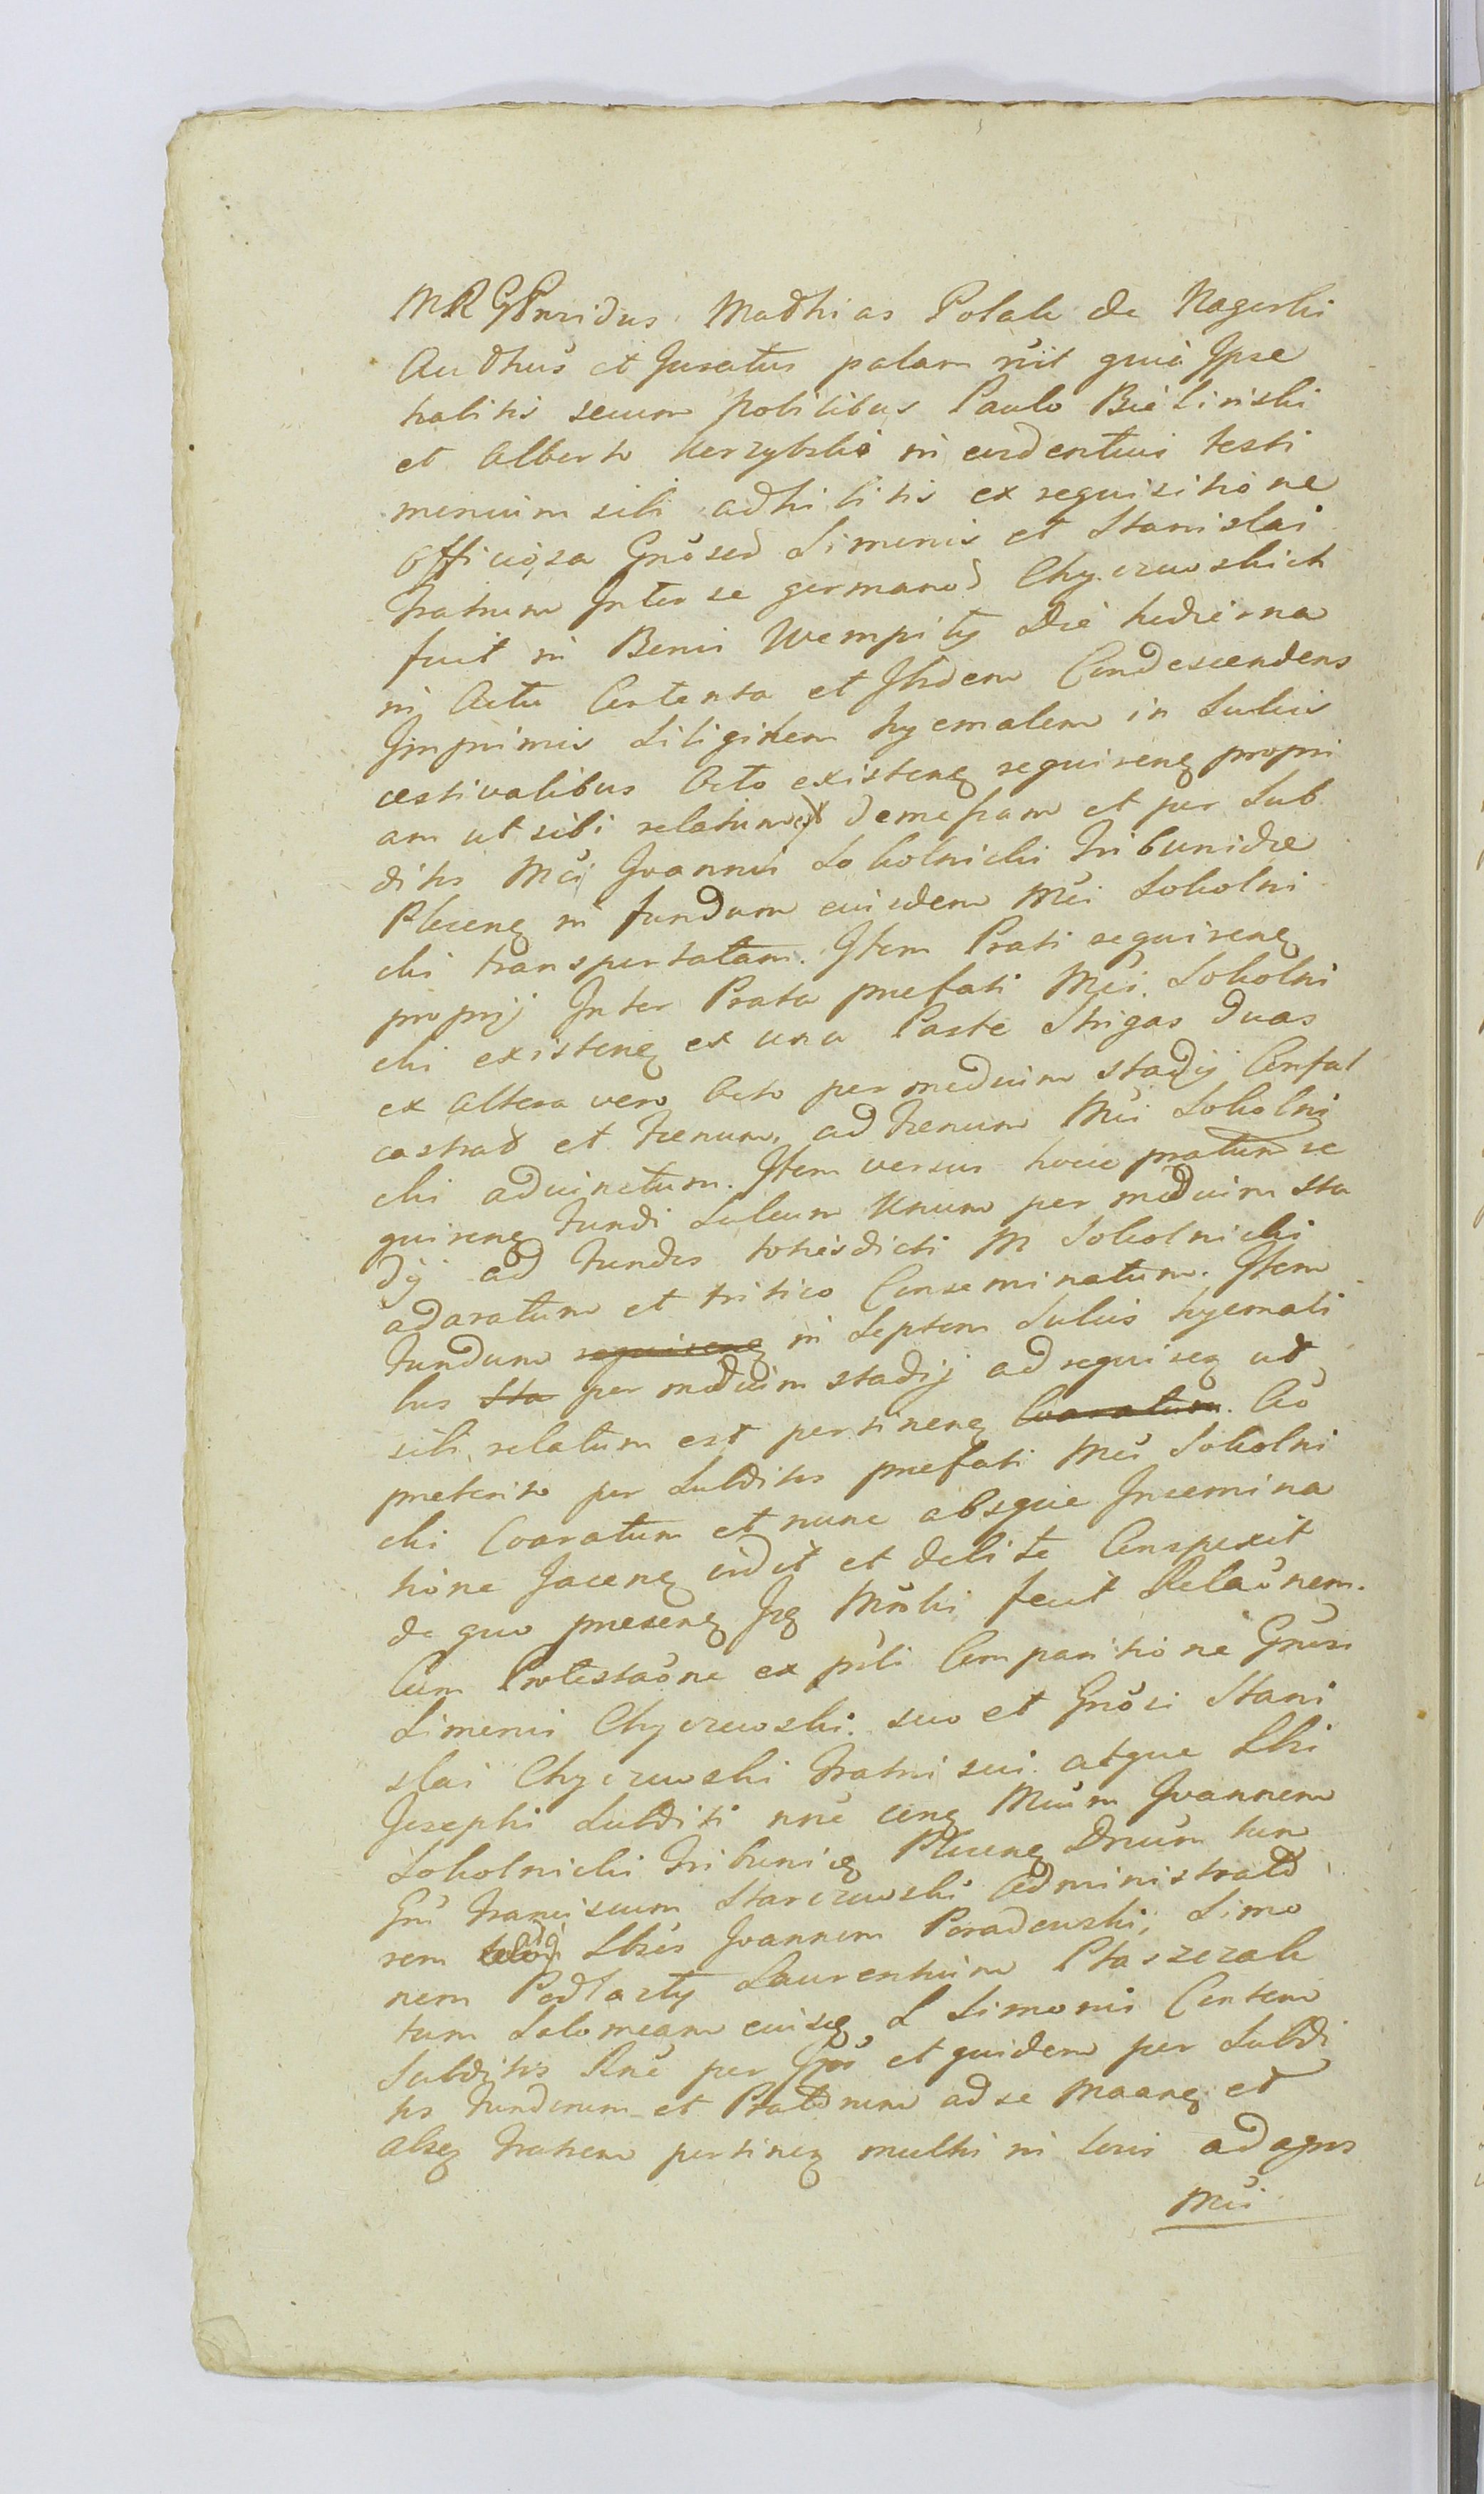 MR Gñ Prvidus Mathias Polak de Nagorki
Authus et Juratus palam rñit quia Ipse
habitis secum Nobilibus Paulo Bielinski
et Alberto Kerzybski in evidentius testi
monium sibi adhibitis ex requisitione
officiosa Gñosor Simonis et Stanislai
Fratrum Inter se germanor Chyczewskich
fuit in Bonis Wempiły Die hodierna
in Actu Contenta et Ibidem Condescendens
Imprimis Siliginem hyemalem in Sulcis
aestivalibus Octo existenẹ requirenẹ propri
am ut sibi relatum est demessam et per Sub
ditos Mci Joannis Sokolnicki Tribunidae
Plocenẹ in fundum eiusdem Mci Sokolni
cki transportatam. Item Prati requirenẹ
proprij Inter Prata praefati Mci Sokolni
cki existenẹ ex una Parte Strigas duas
ex altera vero Octo per medium stadij Confal
castrat et Foenum ad Foenum Mci Sokolni
cki adiunctum. Item versus hocce pratum re
quirenẹ Fundi Sulcum Unum per medium sta
dij ad Fundos totiesdicti M Sokolnicki
adaratum et tritico Conseminatum. Item
Fundum requirenẹ in Septem Sulcis hyemali
bus Sta per medium stadij ad requirenẹ ut
sibi relatum est pertinenẹ Coaratum. Aõ
praeterito per Subditos praefati Mci Sokolni
cki Coaratum et nunc absque Insemina
tione Jacenẹ vidit et debite Conspexit
de quo praesenẹ Iẹ Mñsti fecit Relaõnem.
Cum Protestaõne ex pñti Comparitione Gñosi
Simonis Chyczewski suo et Gñosi Stani
slai Chyczewski Fratris sui atque Lbi
Josephi Subditi nñe conẹ Mcum Joannem
Sokolnicki Tribunidẹ Plocenẹ Dñum tum
Gñ Franciscum Starczewski Administrato
rem Lbos Joannem Paradowski, Simo
nem Podlasty Laurentium Ptaszczak
tum Salomeam eiusdẹ L Simonis Contem
Subditos Rñe per Ipos et quidem per Subdi
tos Fundorum et Pratorum ad se Maanẹ et
absẹ Fratrem pertinenẹ multis in locis ad agros
Mci